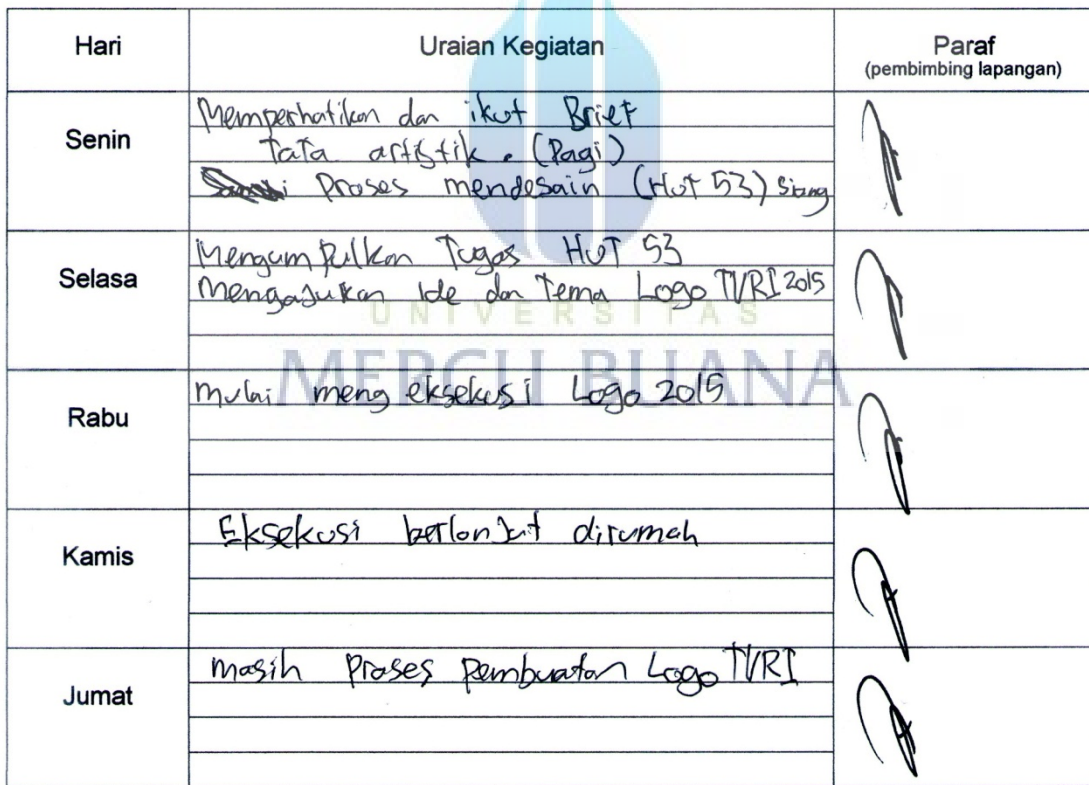 Hari
Uraian Kegiatan
Paraf
(pembimbing lapangan)
Senin
Memperhatikan dan ikut Brief
Tata artistik. (Pagi)
Proses mendesain (HUT 53) Siang
Selasa
Mengumpulkan Tugas HUT 53
Mengajukan Ide dan Tema Logo TVRI 2015
UNIVERSITAS
MERCU BUANA
Rabu
mulai mengeksekusi Logo 2015
Kamis
Eksekusi berlanjut dirumah
Jumat
masih Proses pembuatan Logo TVRI